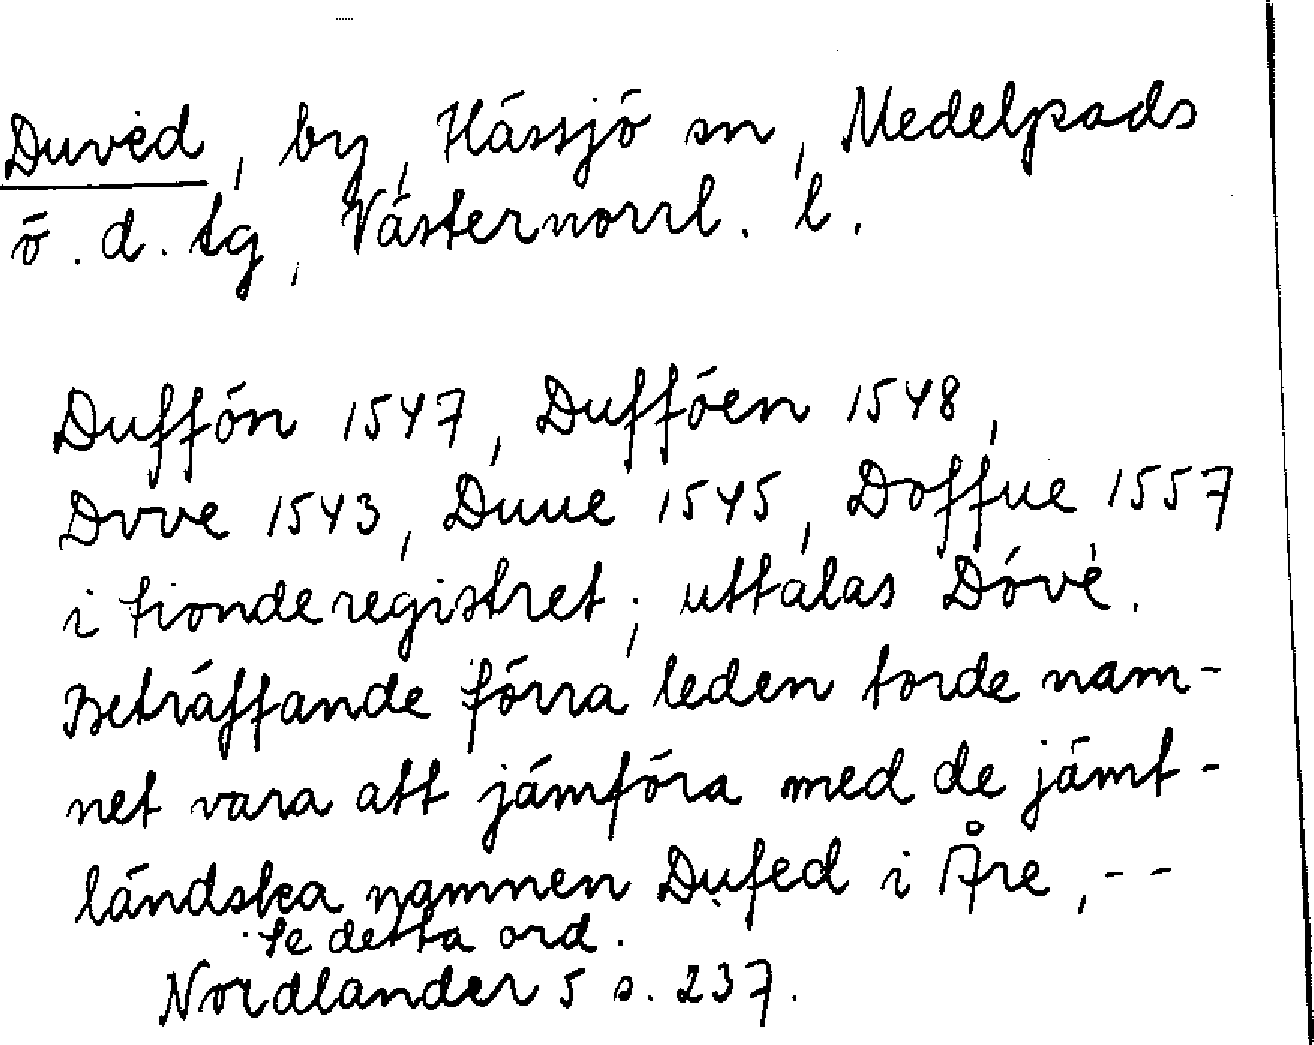 Duvèd, by, Hässjö sn, Medelpads
ö. d. tg, Västernorrl. l.
Duffön 1547, Dufföen 1548,
Dvve 1543, Duue 1545, Doffue 1557
i tionderegistret; uttalas Dövè.
Beträffande förra leden torde nam-
net vara att jämföra med de jämt-
ländska namnen Dufed i Åre, --
se detta ord.
Nordlander 5 s. 237.